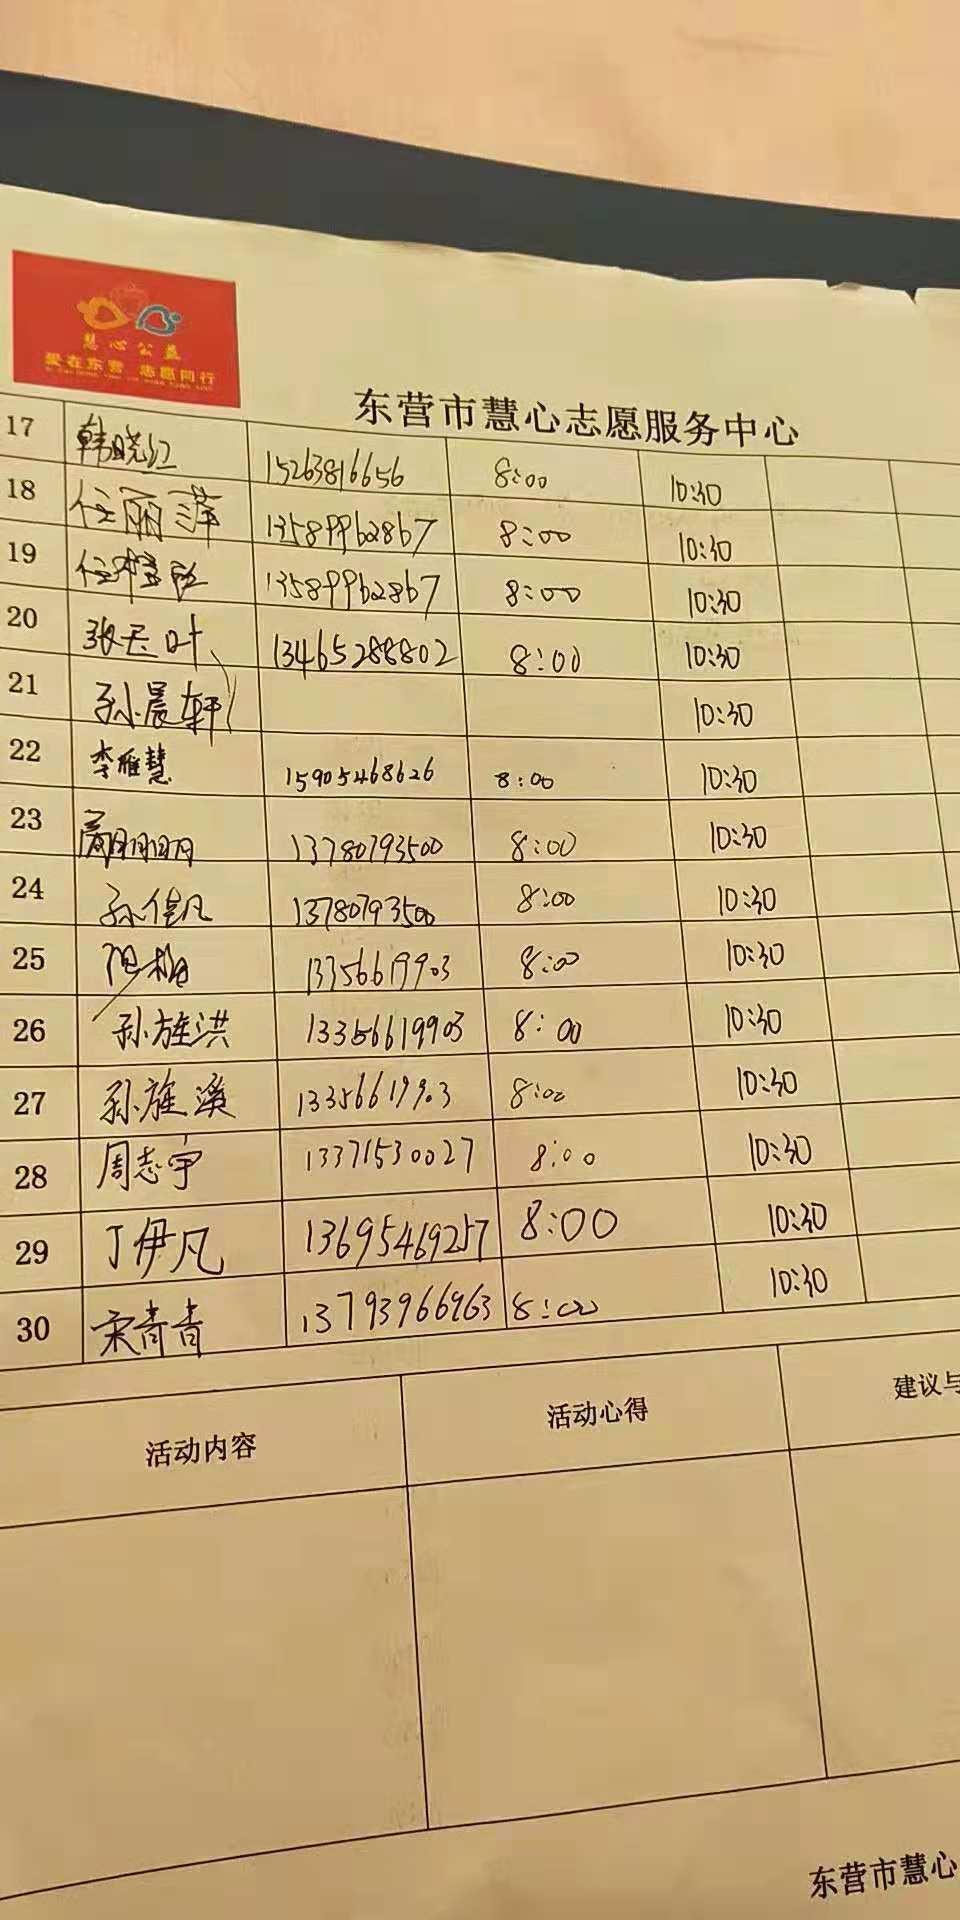 慧心公益
爱在东营 志愿同行
东营市慧心志愿服务中心
17 韩晓红 15263816656 8:00 10:30
18 任丽萍 13589962867 8:00 10:30
19 13589962867 8:00 10:30
20 张云叶 13465288802 8:00 10:30
21 孙晨轩 10:30
22 李雁慧 15905468626 8:00 10:30
23 13780793500 8:00 10:30
24 孙佳凡 13780793500 8:00 10:30
25 13356619903 8:00 10:30
26 孙旌洪 13356619903 8:00 10:30
27 孙旌溪 13356619903 8:00 10:30
28 周志宇 13371530027 8:00 10:30
29 丁伊凡 13695469257 8:00 10:30
30 宋青青 13793966963 8:00 10:30
活动内容 活动心得 建议与
东营市慧心